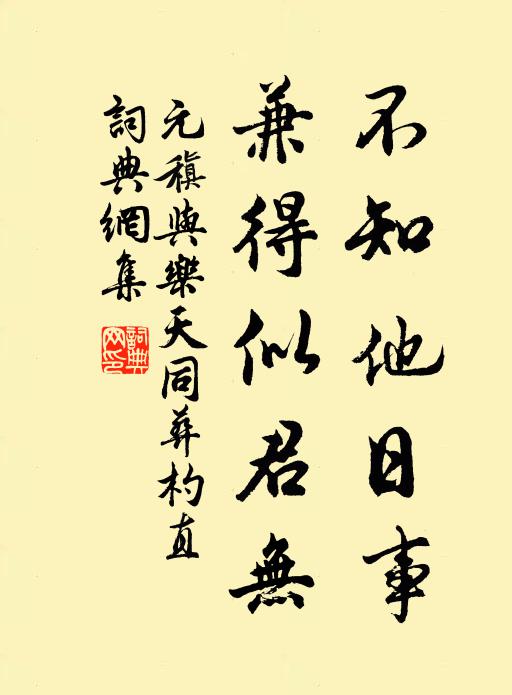 不知他日事
兼得似君無
元稹與樂天同葬杓直
詞典網集
詞典網印